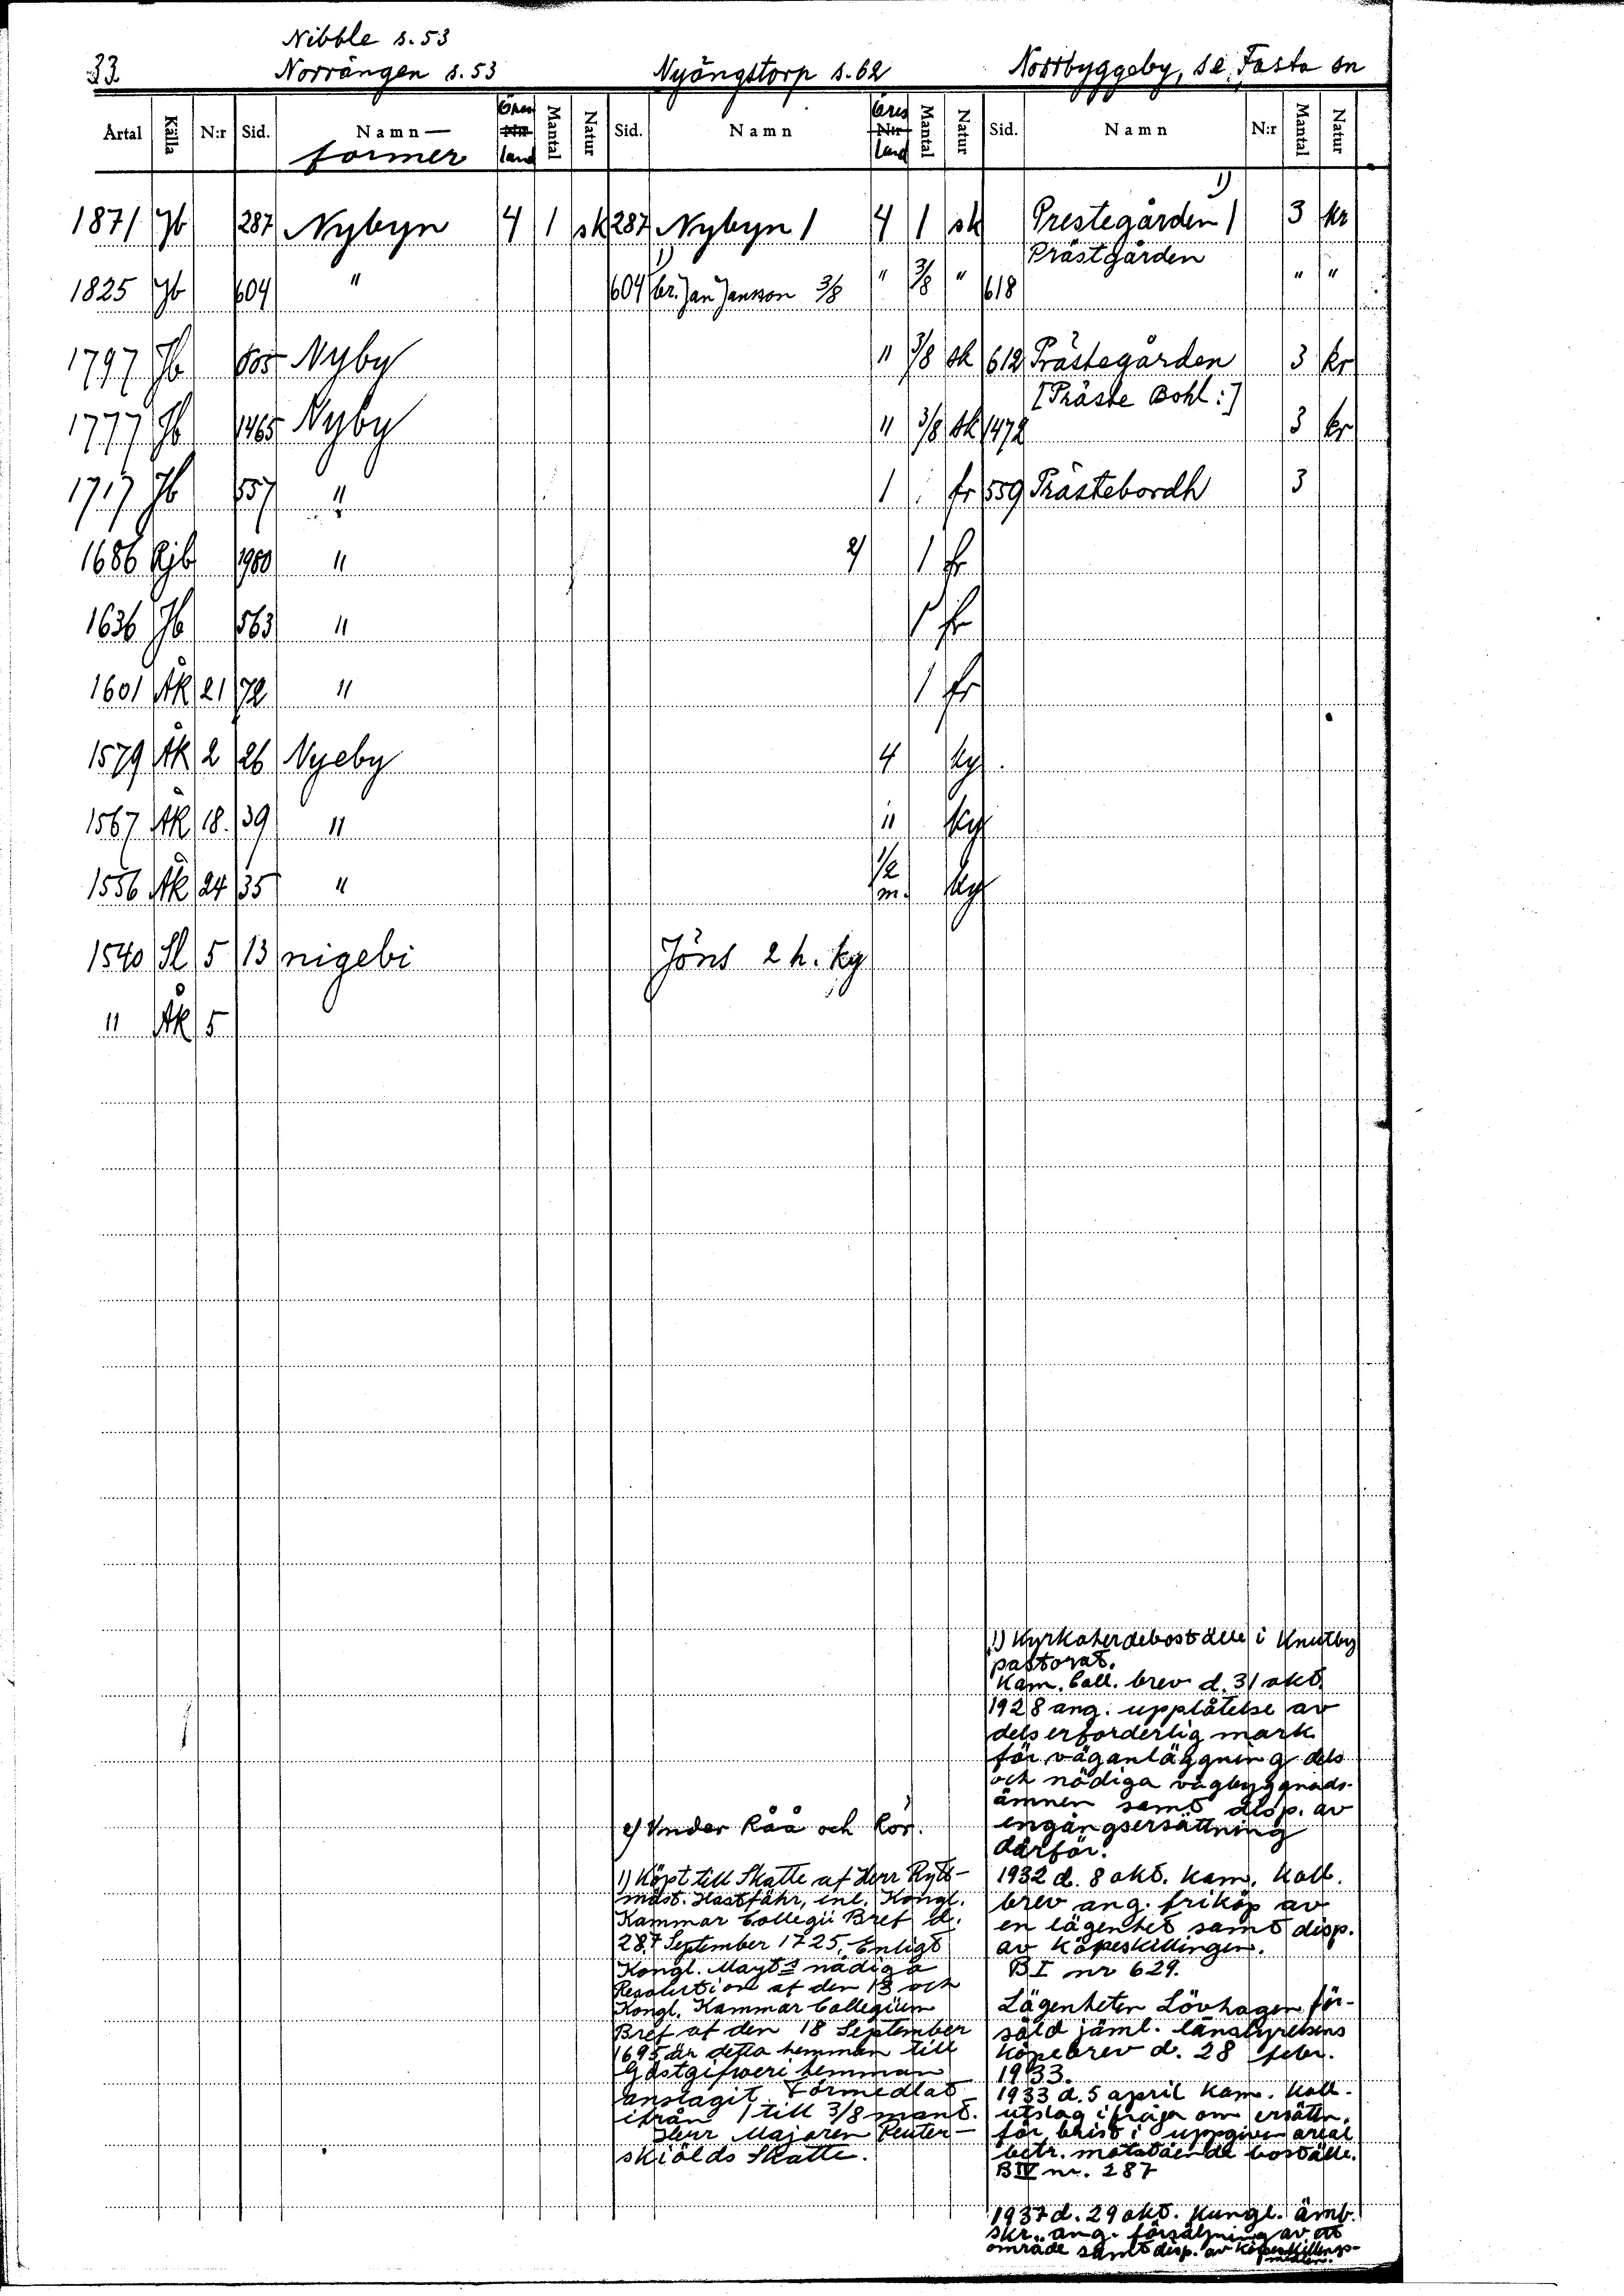 Nibble s. 53
33 Norrängen s. 53 Nyängstorp s. 62 Norrbyggeby, se Fasta sn
Årtal Källa N:r Sid. Namn— Öres N:r Mantal Natur Sid. Namn Öres N:r Mantal Natur Sid. Namn N:r Mantal Natur
former land land
1)
1871 Jb 287 Nybyn 4 1 sk 287 Nybyn 1 4 1 sk Prestegården 1 3 kr
1) Prästgården
1825 Jb 604 " 604 br. Jan Jansson 3/8 " 3/8 " 618 " "
1797 Jb 605 Nyby " 3/8 sk 612 Prästegården 3 kr
[Präste Bohl:]
1777 Jb 1465 Nyby " 3/8 sk 1472 3 kr
1717 Jb 557 " 1 fr 559 Prästebordh 3
1686 Rjb 1980 " 2) 1 fr
1636 Jb 563 " 1 fr
1601 Åk 21 72 " 1 fr
1579 Åk 2 26 Nyeby 4 ky
1567 Åk 18. 39 " " ky
1556 Åk 24 35 " 1/2 m. ky
1540 Sl 5 13 nigebi Jöns 2 h. ky
" Åk 5
2) Under Råå och Rör.
1) Köpt till Skatte af Herr Rytt-
mäst. Hastfähr, enl. Kongl.
Kammar Collegii Bref d.
28 September 1725. Enligt
Kongl. Mayts nådiga
Resolution af den 13 och
Kongl. Kammar Collegium
Bref af den 18 September
1695 är detta hemman till
Gästgifweri hemman
anslagit. Förmedlat
ifrån 1 till 3/8 mant.
Herr Majoren Reuter-
skiölds Skatte.
1) Kyrkoherdeboställe i Knutby
pastorat.
Kam. Coll. brev d. 31 okt.
1928 ang. upplåtelse av
dels erforderlig mark
för väganläggning dels
och nödiga vägbyggnads-
ämnen samt disp. av
engångsersättning
därför.
1932 d. 8 okt. Kam. Koll.
brev ang. friköp av
en lägenhet samt disp.
av köpeskillingen.
B I nr 629.
Lägenheten Lövhagen för-
såld jäml. länsstyrelsens
köpebrev d. 28 febr.
1933.
1933 d. 5 april Kam. Koll.
utslag i fråga om ersättn.
för brist i uppgiven areal
betr. motstående boställe.
B IV nr. 287
1937 d. 29 okt. Kungl. ämb.
skr. ang. försäljning av ett
område samt disp. av köpeskillings-
medlen.